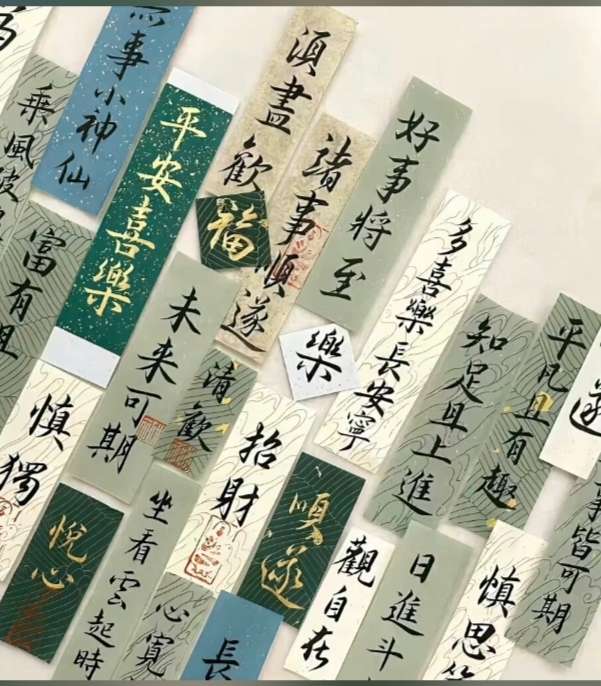 乘風破
事小神仙
平安喜樂
須盡歡
福
諸事順遂
好事將至
多喜樂長安寧
知足且上進
平凡且有趣
遂
事皆可期
富有且
未来可期
清歡
樂
招財
順遂
慎獨
悅心
坐看雲起時
心寬
長
觀自在
日進斗
慎思